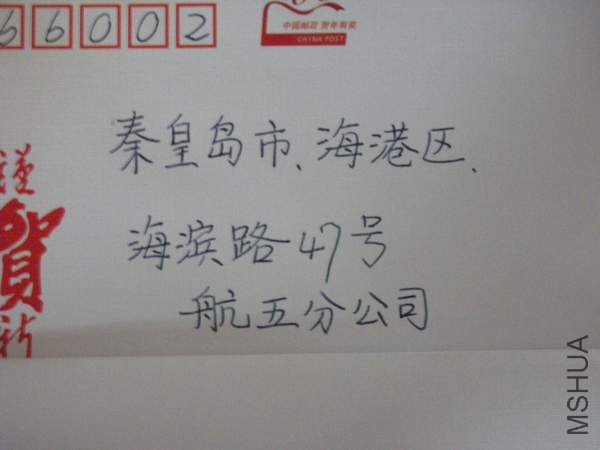 66002
中国邮政 贺年有奖
CHINA POST
秦皇岛市、海港区、
海滨路47号
航五分公司
谨
贺
新
MSHUA